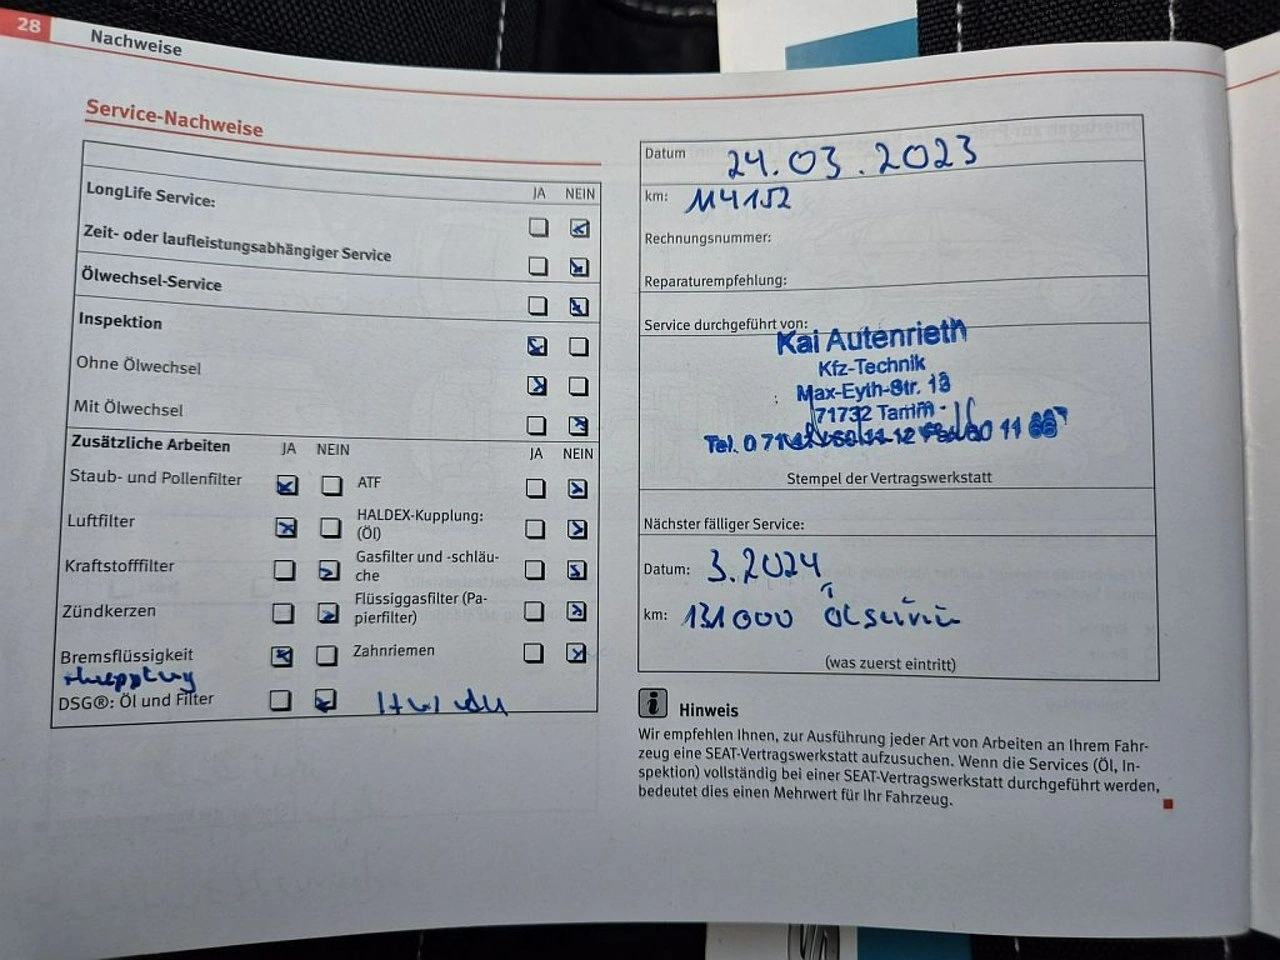 28 Nachweise
Service-Nachweise
JA NEIN
LongLife Service:
Zeit- oder laufleistungsabhängiger Service
Ölwechsel-Service
Inspektion
Ohne Ölwechsel
Mit Ölwechsel
Zusätzliche Arbeiten JA NEIN JA NEIN
Staub- und Pollenfilter ATF
Luftfilter HALDEX-Kupplung:
(Öl)
Kraftstofffilter Gasfilter und -schläu-
che
Zündkerzen Flüssiggasfilter (Pa-
pierfilter)
Bremsflüssigkeit Zahnriemen
DSG®: Öl und Filter
Datum 24.03.2023
km: 114152
Rechnungsnummer:
Reparaturempfehlung:
Service durchgeführt von:
Kai Autenrieth
Kfz-Technik
Max-Eyth-Str. 13
71732 Tamm
Tel. 0 71
Stempel der Vertragswerkstatt
Nächster fälliger Service:
Datum: 3.2024
km: 131000 Ölservice
(was zuerst eintritt)
Hinweis
Wir empfehlen Ihnen, zur Ausführung jeder Art von Arbeiten an Ihrem Fahr-
zeug eine SEAT-Vertragswerkstatt aufzusuchen. Wenn die Services (Öl, In-
spektion) vollständig bei einer SEAT-Vertragswerkstatt durchgeführt werden,
bedeutet dies einen Mehrwert für Ihr Fahrzeug.